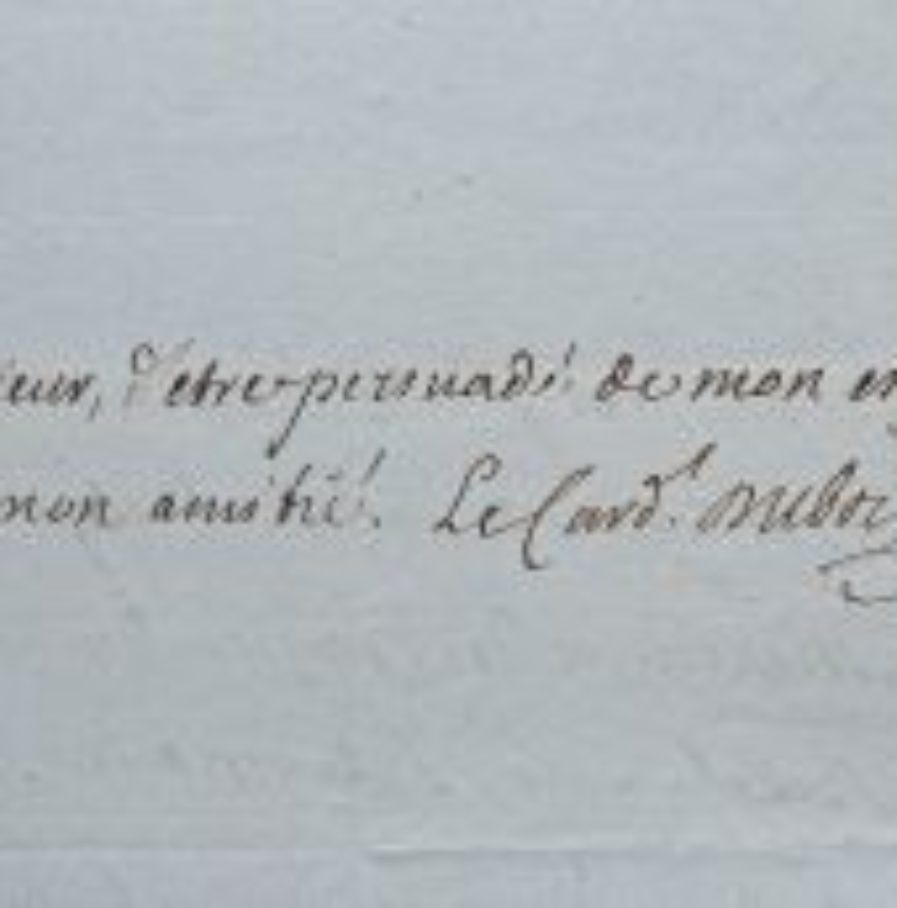 ieur, d'etre persuadé de mon en
mon amitié. Le Card.l Duboi